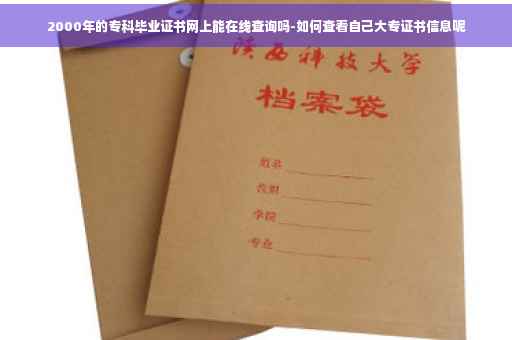 2000年的专科毕业证书网上能在线查询吗-如何查看自己大专证书信息呢
陕西科技大学
档案袋
姓名
学院
专业